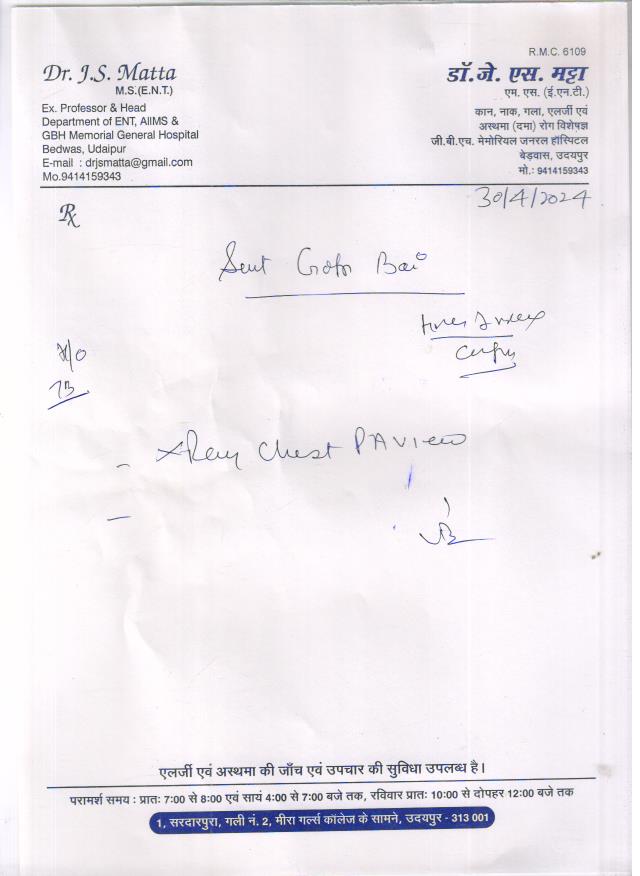 R.M.C. 6109
Dr. J.S. Matta
M.S.(E.N.T.)
Ex. Professor & Head
Department of ENT, AIIMS &
GBH Memorial General Hospital
Bedwas, Udaipur
E-mail : drjsmatta@gmail.com
Mo.9414159343
डॉ. जे. एस. मट्टा
एम. एस. (ई.एन.टी.)
कान, नाक, गला, एलर्जी एवं
अस्थमा (दमा) रोग विशेषज्ञ
जी.बी.एच. मेमोरियल जनरल हॉस्पिटल
बेड़वास, उदयपुर
मो.: 9414159343
30/4/2024
Rx
Bai
H/o
TB
- X Ray Chest PA View
-
एलर्जी एवं अस्थमा की जाँच एवं उपचार की सुविधा उपलब्ध है।
परामर्श समय : प्रातः 7:00 से 8:00 एवं सायं 4:00 से 7:00 बजे तक, रविवार प्रातः 10:00 से दोपहर 12:00 बजे तक
1, सरदारपुरा, गली नं. 2, मीरा गर्ल्स कॉलेज के सामने, उदयपुर - 313 001